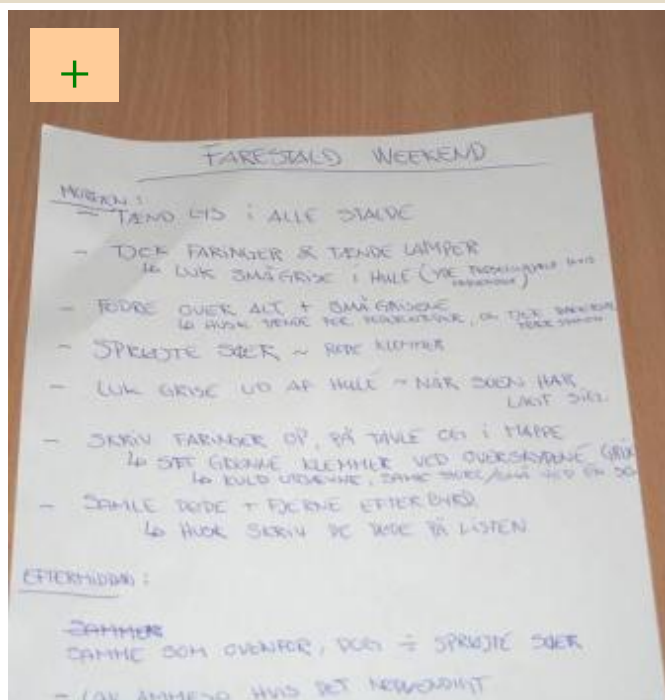 +
FARESTALD WEEKEND
MORGEN :
- TÆND LYS i ALLE STALDE
- TJEK FARINGER & TÆNDE LAMPER
↳ LUK SMÅGRISE i HULE (
- FODRE OVER ALT + SMÅGRISENE
↳ HUSK FOR TJEK
- SPRØJTE SØER ~ RØDE KLEMMER
- LUK GRISE UD AF HULE ~ NÅR SOEN HAR
LAGT SIG.
- SKRIV FARINGER OP, PÅ TAVLE OG i MAPPE
↳ SÆT GRØNNE KLEMMER VED OVERSKYDENE
↳ KULD UDJÆVNE, VED EN
- SAMLE DØDE + FJERNE EFTERBYRD
↳ HUSK SKRIV DE DØDE PÅ LISTEN
EFTERMIDDAG :
SAMME SOM OVENFOR, DOG ÷ SPRØJTE SØER
- HVIS DET NØDVENDIGT